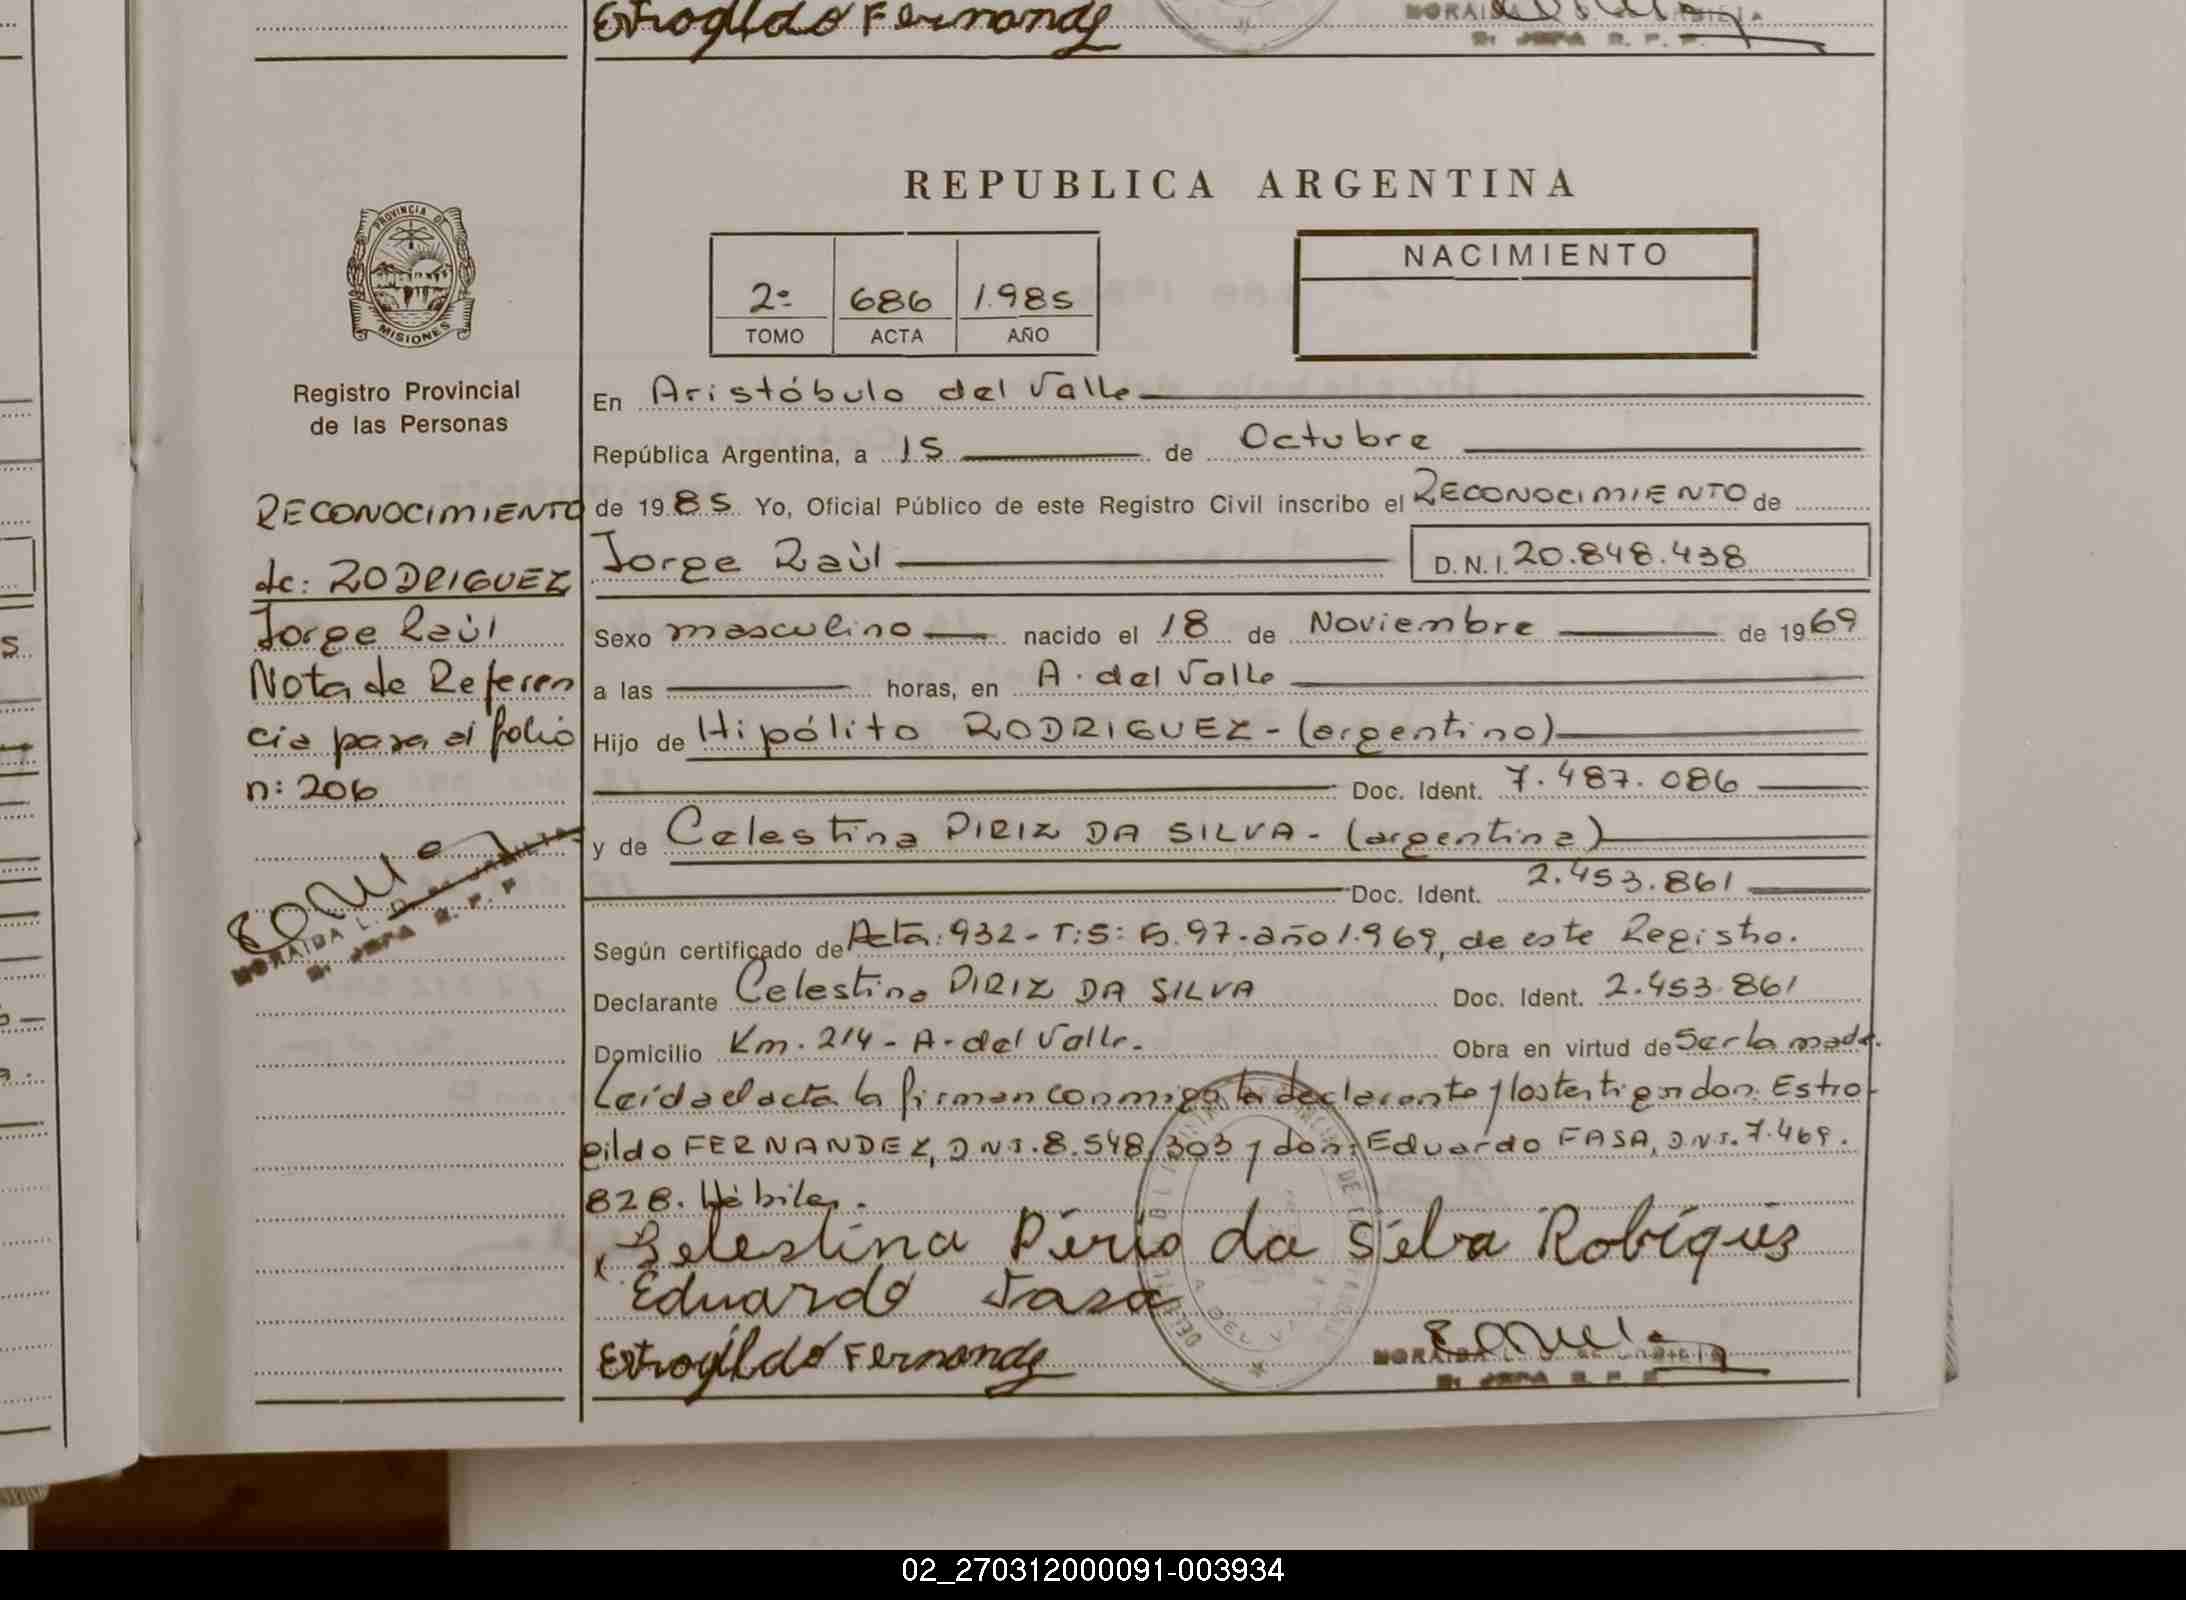 Estrogildo Fernandez
REPUBLICA ARGENTINA
PROVINCIA DE
MISIONES
Registro Provincial
de las Personas
2º 686 1.985
TOMO ACTA AÑO
NACIMIENTO
En Aristóbulo del Valle
República Argentina, a 15 de Octubre
de 1985 Yo, Oficial Público de este Registro Civil inscribo el RECONOCIMIENTO de
Jorge Raúl D.N.I. 20.848.438
Sexo masculino nacido el 18 de Noviembre de 1969
a las horas, en A. del Valle
Hijo de Hipólito RODRIGUEZ - (argentino)
Doc. Ident. 7.487.086
y de Celestina PIRIZ DA SILVA - (argentina)
Doc. Ident. 2.453.861
Según certificado de Acta: 932 - T: 5: F. 97 - año 1.969, de este Registro.
Declarante Celestina PIRIZ DA SILVA Doc. Ident. 2.453.861
Domicilio Km. 214 - A. del Valle. Obra en virtud de Ser la madre.
Leída el acta la firman conmigo la declarante y los testigos don: Estro-
gildo FERNANDEZ, D.N.I. 8.548.303 y don: Eduardo FASA, D.N.I. 7.469.
828. Hábiles.
Selestina Pério da Silva Robíquis
Eduardo Fasa
Estrogildo Fernandez
RECONOCIMIENTO
de: RODRIGUEZ
Jorge Raúl
Nota de Referen
cia para el folio
n: 206
MORAIDA L.
02_270312000091-003934